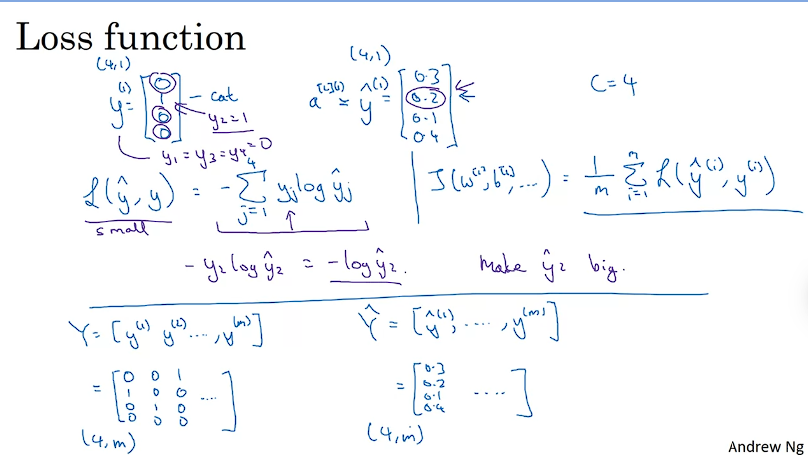 Loss function
(4,1)
y^(1) = [0 1 0 0] - cat
y₂ = 1
y₁ = y₃ = y₄ = 0
(4,1)
a^[L](1) = ŷ^(1) = [0.3 0.2 0.1 0.4]
C = 4
L(ŷ, y) = - Σ_{j=1}^{4} y_j log ŷ_j
small
J(w^[1], b^[1], ...) = 1/m Σ_{i=1}^{m} L(ŷ^(i), y^(i))
- y₂ log ŷ₂ = - log ŷ₂.
Make ŷ₂ big.
Y = [y^(1) y^(2) ...., y^(m)]
Ŷ = [ŷ^(1), ...., y^(m)]
= [0 0 1
1 0 0 ....
0 1 0
0 0 0]
(4, m)
= [0.3
0.2
0.1 ....
0.4]
(4, m)
Andrew Ng